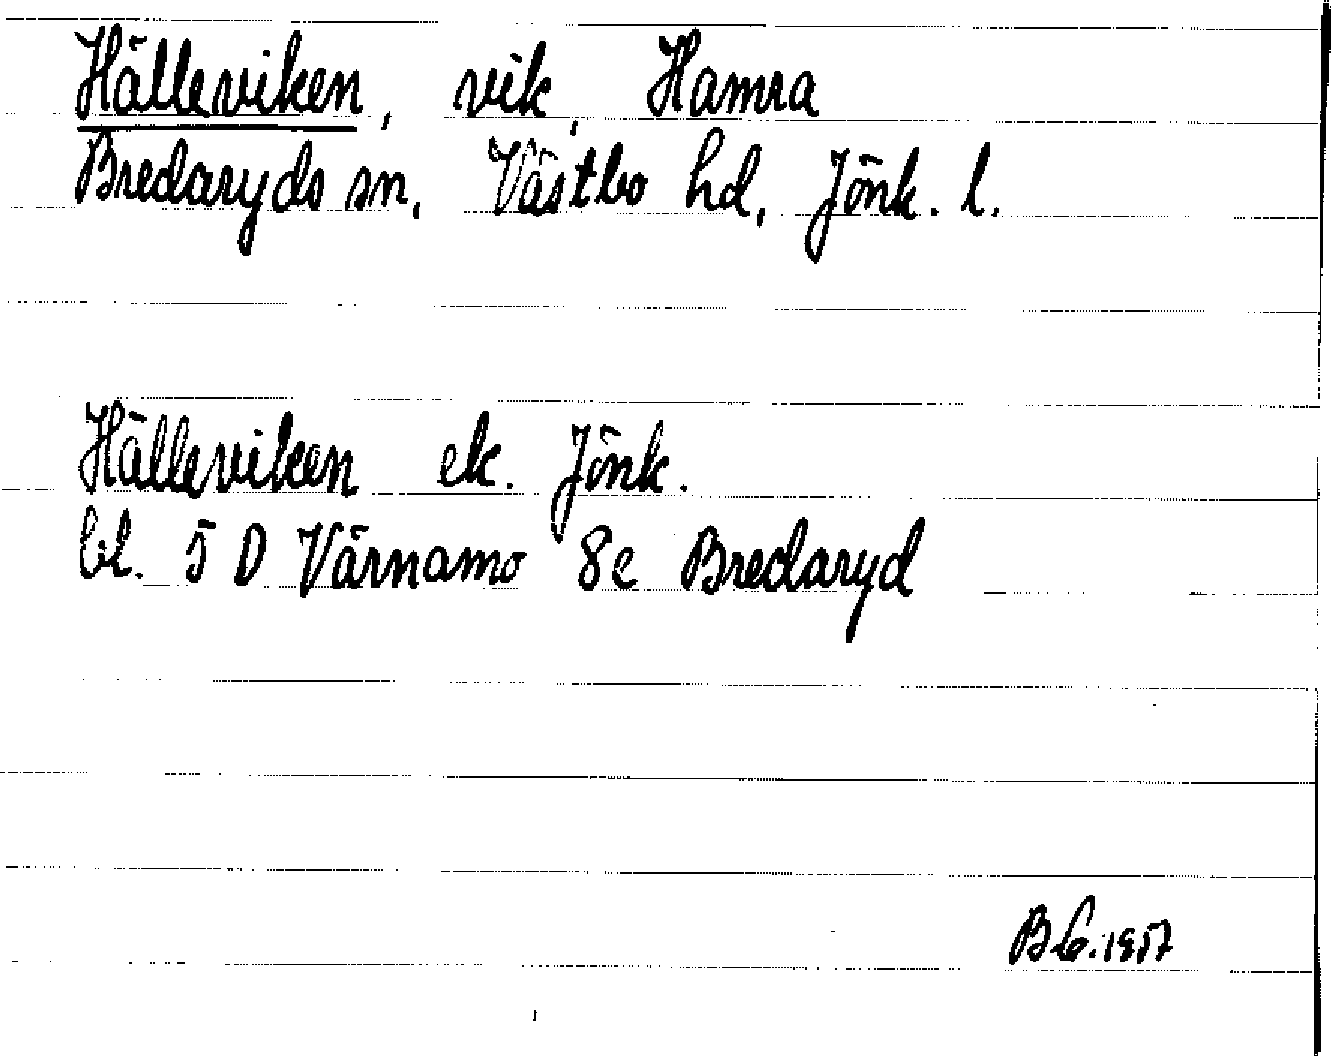 Hälleviken, vik, Hamra
Bredaryds sn, Västbo hd, Jönk. l.
Hälleviken ek. Jönk.
bl. 5 D Värnamo 8e Bredaryd
1957